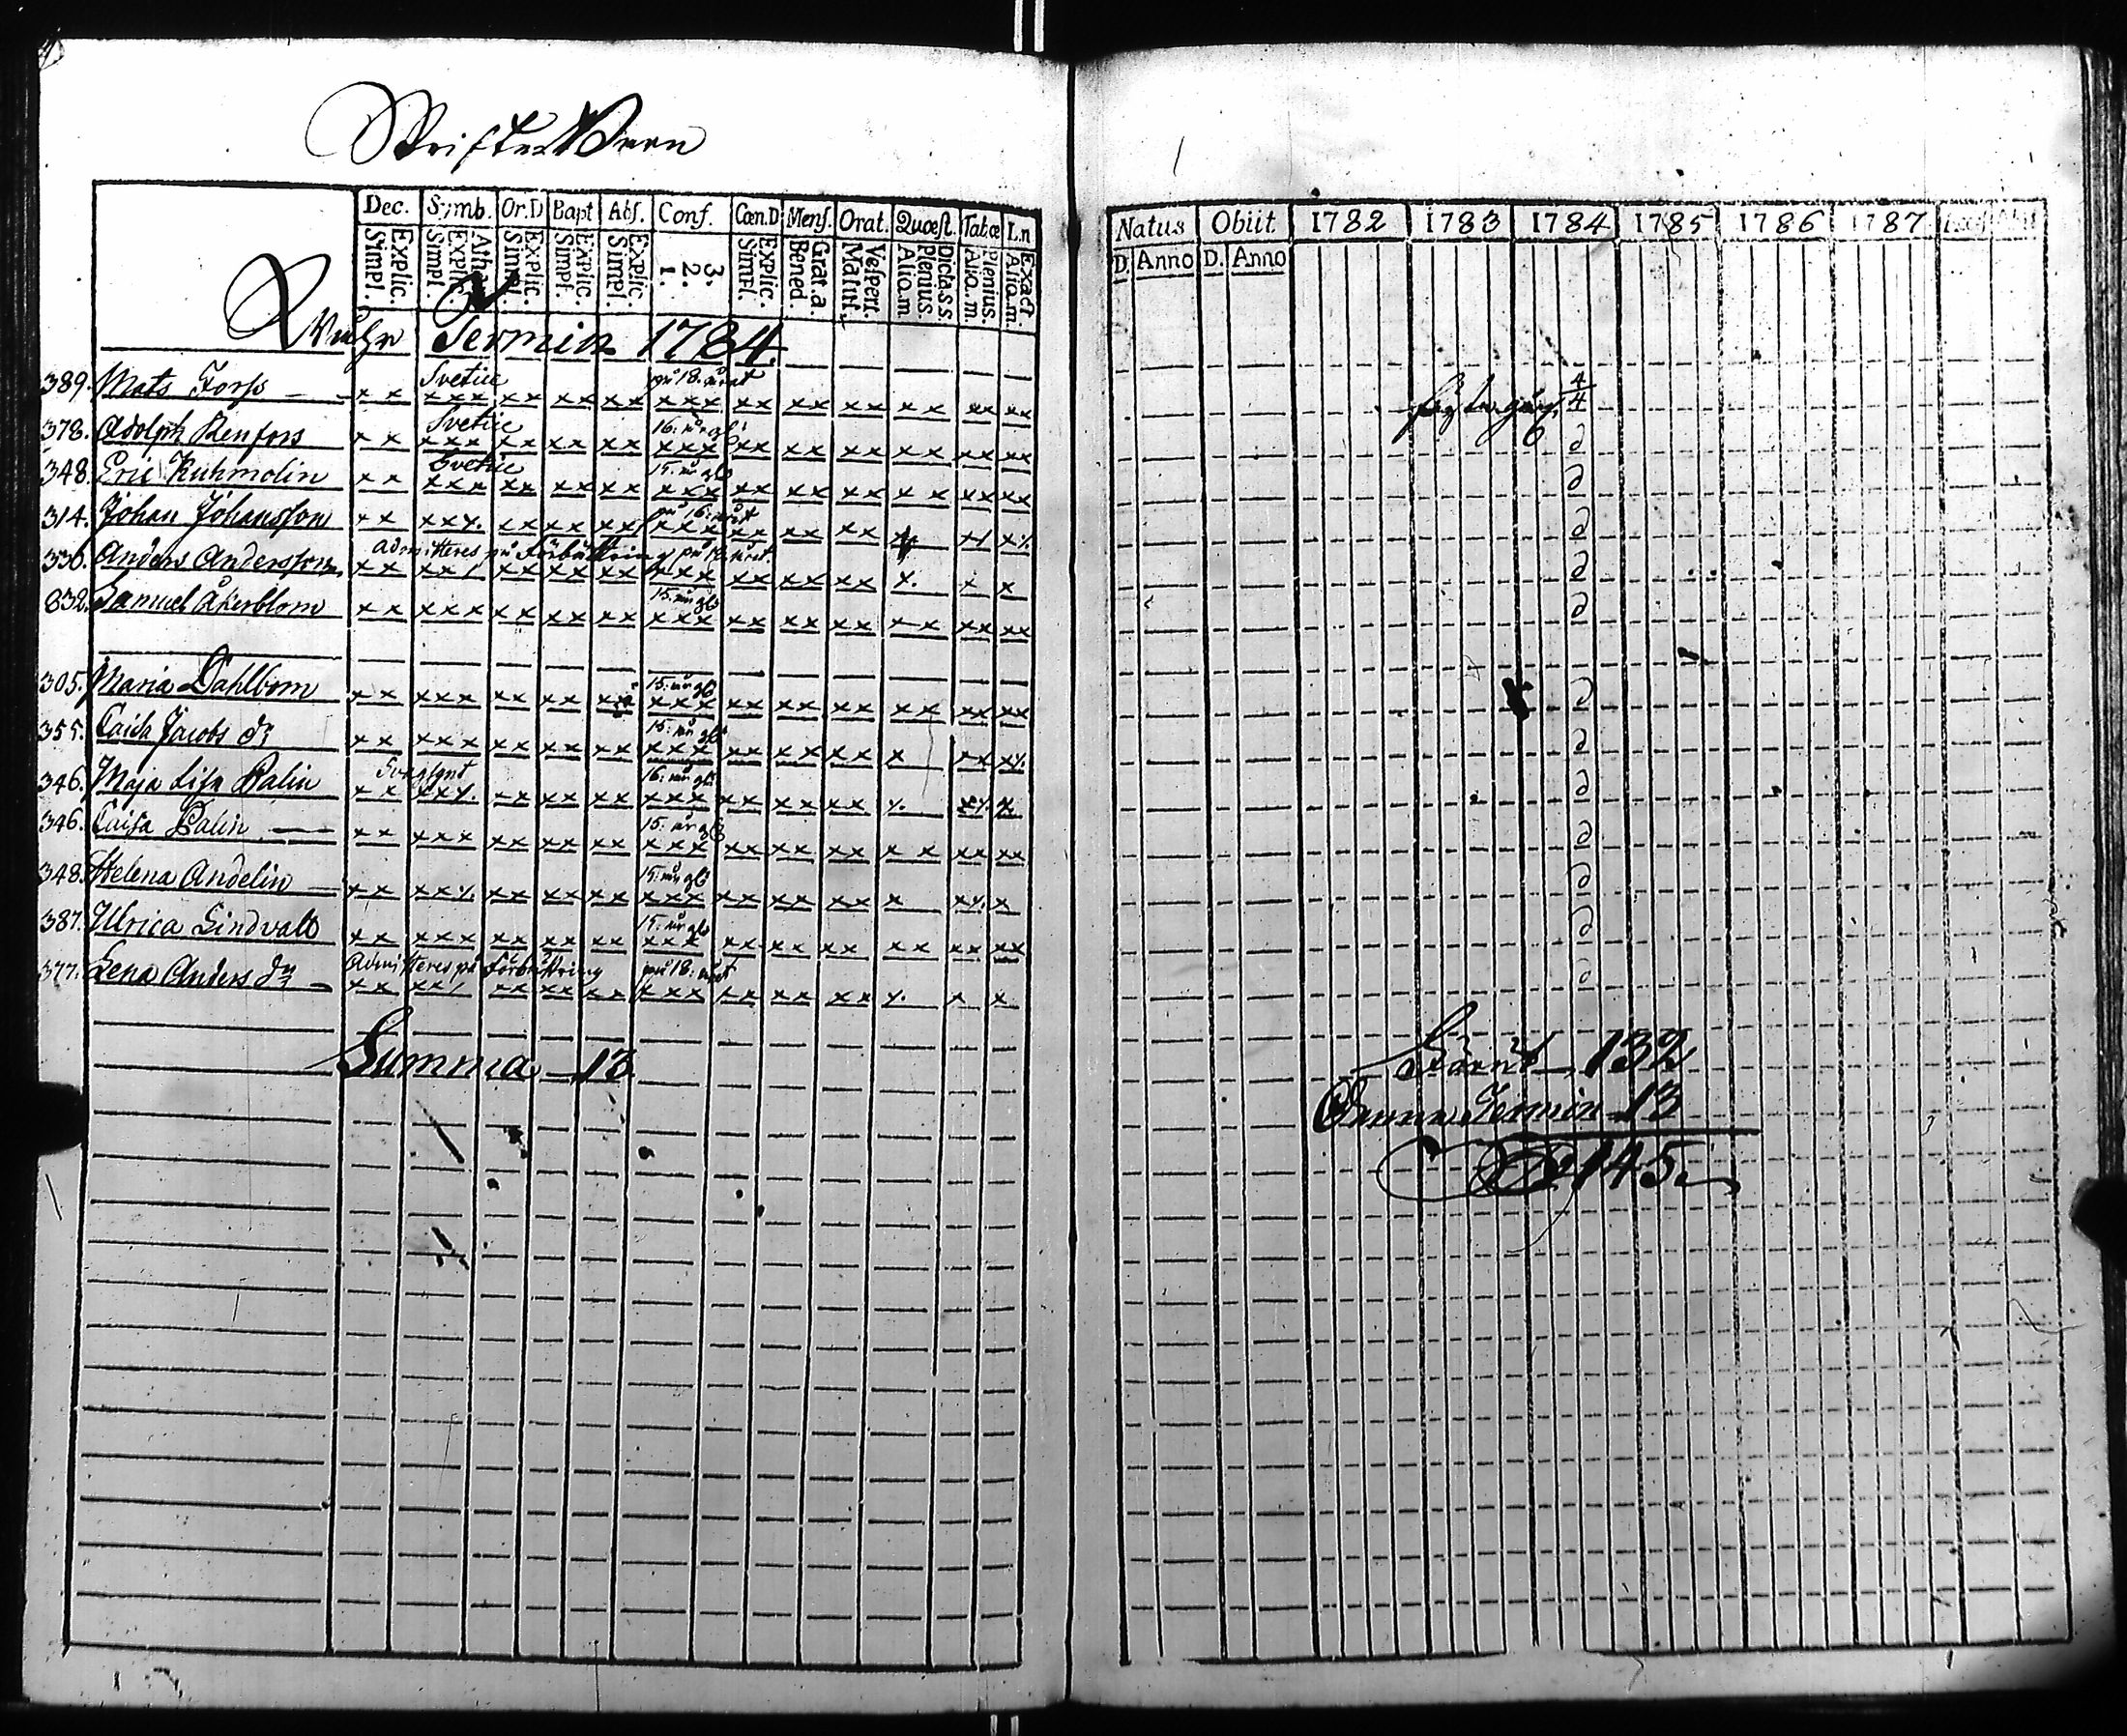 Skrifte Barn
Dec. Symb. Or.D Bapt Abs. Conf. Cœn.D Mens. Orat. Quæst. Tabæ
Simpl. Explic. Simpl. Explic. Simpl. Explic. Simpl. Explic. Simpl. Explic. 1. 2. 3. Simpl. Explic. Bened. Grat.a. Matut. Vespert. Aliq.m. Plenius Dicta.s.s. Aliq.m. Plenius. Aliq.m. Exact
Termin 1784.
389. Mats Forss Svetice på 18. året
378. Adolph Renfors Svetice 16. år gl.
348. Eric Kuhmolin Svetice 15. år gl.
314. Johan Johansson på 16. året
336. Anders Andersson Admitteres på förbättring
832. Samuel Åkerblom 15. år gl.
305. Maria Dahlbom 15. år gl.
355. Caisa Jacobs dr 15. år gl.
346. Maja Lisa Palin Svagsynt 16. år gl.
346. Caisa Palin 15. år gl.
348. Helena Andelin 15. år gl.
387. Ulrica Lindvall 15. år gl.
377. Lena Anders dr Admitteres på förbättring på 18. året
Summa 13
Natus Obiit 1782 1783 1784 1785 1786 1787
D. Anno D. Anno
första gång. 4/4
132
Denna Termin 13
145.